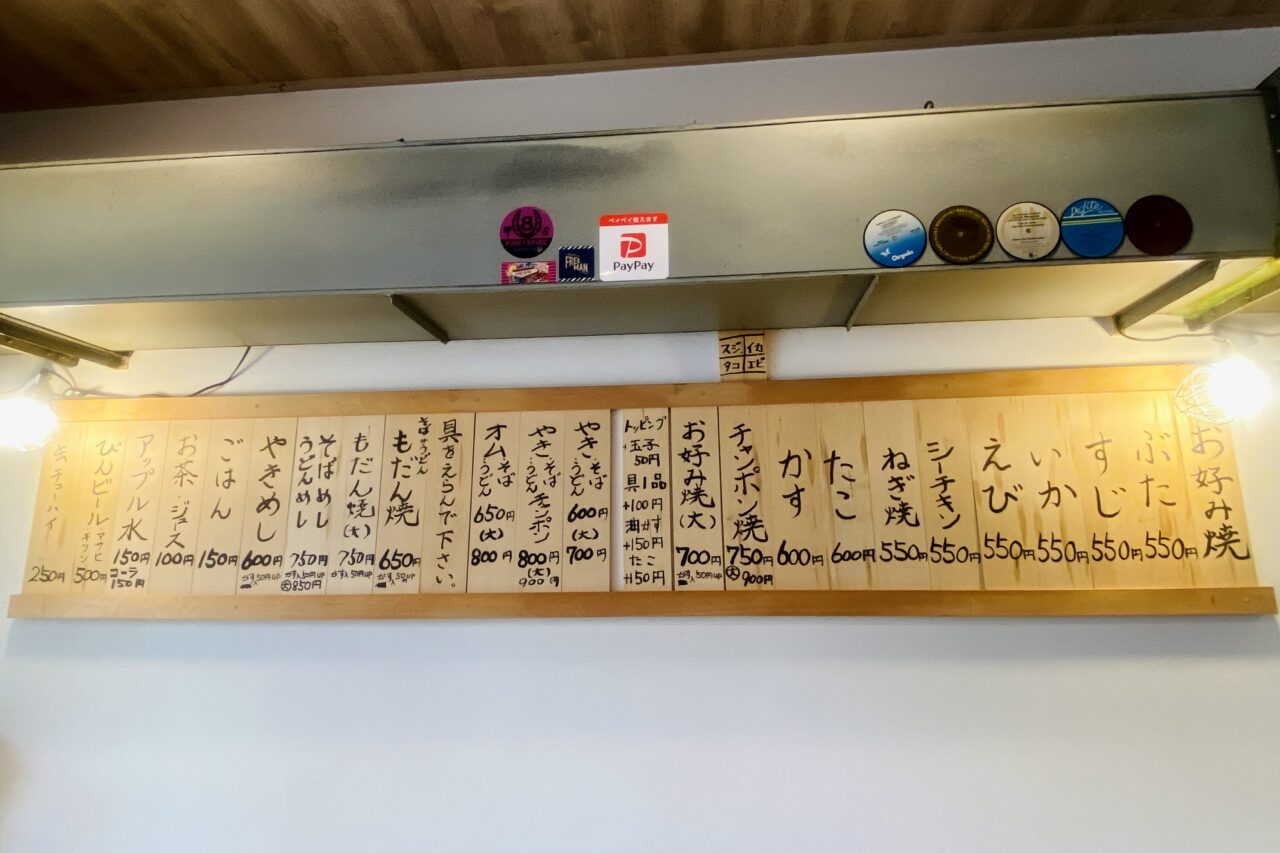 ペイペイ使えます
PayPay
FREEMAN
Chrysalis
スジ イカ
タコ エビ
お好み焼
ぶた 550円
すじ 550円
いか 550円
えび 550円
シーチキン 550円
ねぎ焼 550円
たこ 600円
かす 600円
チャンポン焼 750円
大 900円
お好み焼(大) 700円
かす入50円UP
トッピング
玉子
50円
具1品
+100円
油かす
+150円
たこ
+150円
やき そば うどん 600円
(大)
700円
やき そば うどん チャンポン 800円
(大)
900円
オム そば うどん 650円
(大)
800円
具をえらんで下さい。
そばorうどん
もだん焼 650円
かす入50円UP
もだん焼(大) 750円
かす入50円UP
そばめし
うどんめし
750円
かす入50円UP
大 850円
やきめし 600円
かす入50円UP
ごはん 150円
お茶・ジュース 100円
アップル水 150円
コーラ
150円
びんビール アサヒ キリン 500円
缶チューハイ 250円